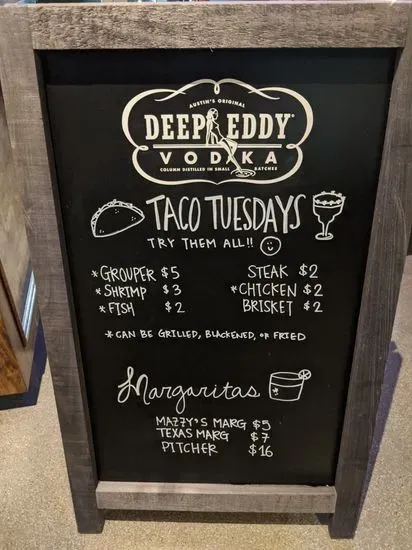 AUSTIN'S ORIGINAL
DEEP EDDY
VODKA
COLUMN DISTILLED IN SMALL BATCHES
TACO TUESDAYS
TRY THEM ALL!!
*GROUPER $5
*SHRIMP $3
*FISH $2
STEAK $2
*CHICKEN $2
BRISKET $2
*CAN BE GRILLED, BLACKENED, OR FRIED
Margaritas
MAZZY'S MARG $5
TEXAS MARG $7
PITCHER $16